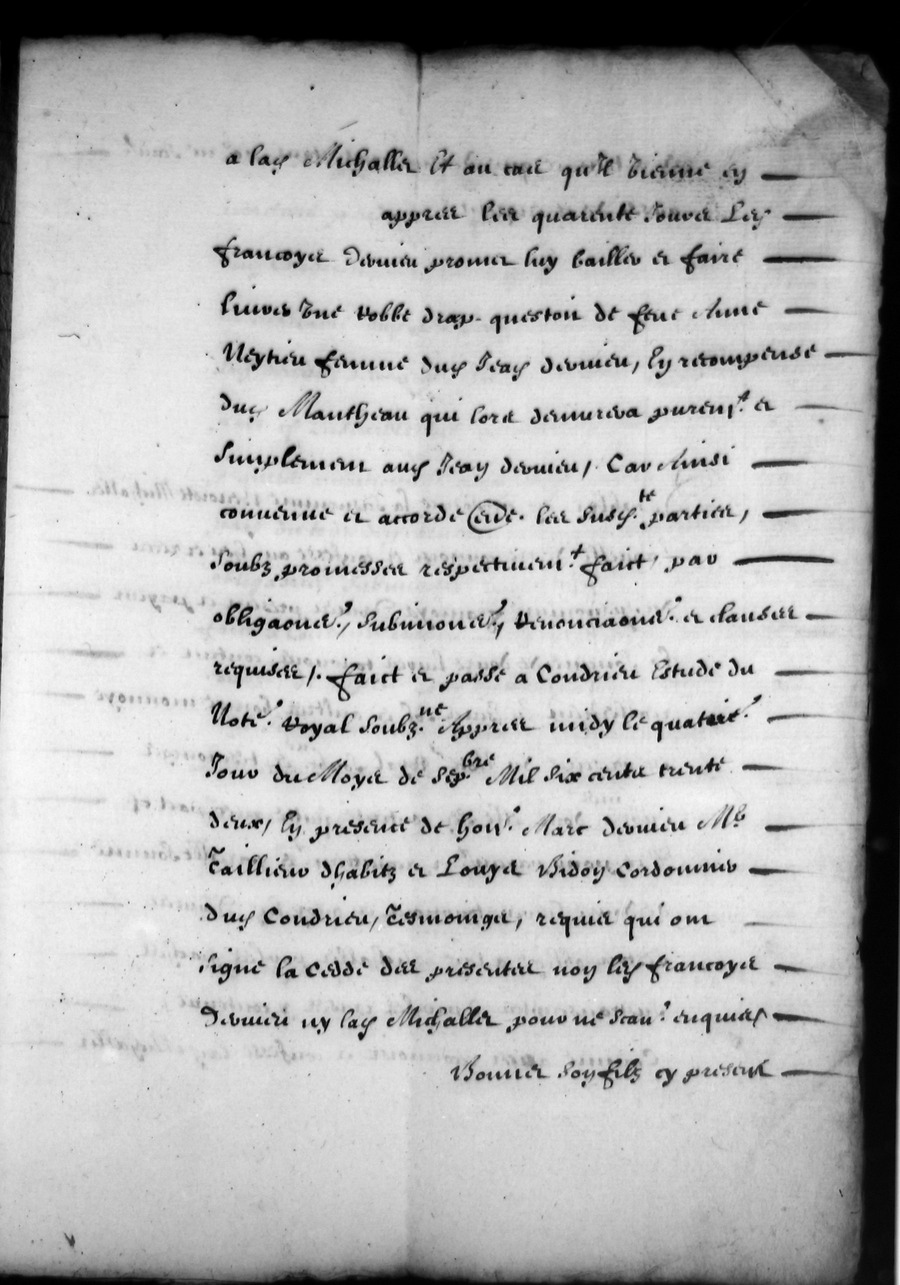 a lad Michallet Et au cas qu'Il vienne en
appres les quarente Jours Led
francoys dervieu promet luy bailler et faire
livrer Une robbe drap questoit de feue Anne
Neyrieu femme dud Jean dervieu, En recompense
dud Mantheau qui lors demurera purem.t et
Simplement aud Jean dervieu, Car Ainsi
convenue et accorde entre les susd.te parties,
Soubz promesses respectivem.t faict, par
obligaones., submiones., renonciaones. et clauses
requises,. faict et passé a Condrieu Estude du
Not.e royal soubz.ne Appres midy le quatrie.
Jour du Moys de Sepbre Mil six centz trente
deux, En presence de hon. Marc dervieu M.e
Taillieur dhabitz et Louys Bidon cordonnier
dud Condrieu, Tesmoings, requis qui ont
signe la cedde des presentes non led francoys
Dervieu ny lad Michallet pour ne scav. enquis,
Bonnet son filz cy present